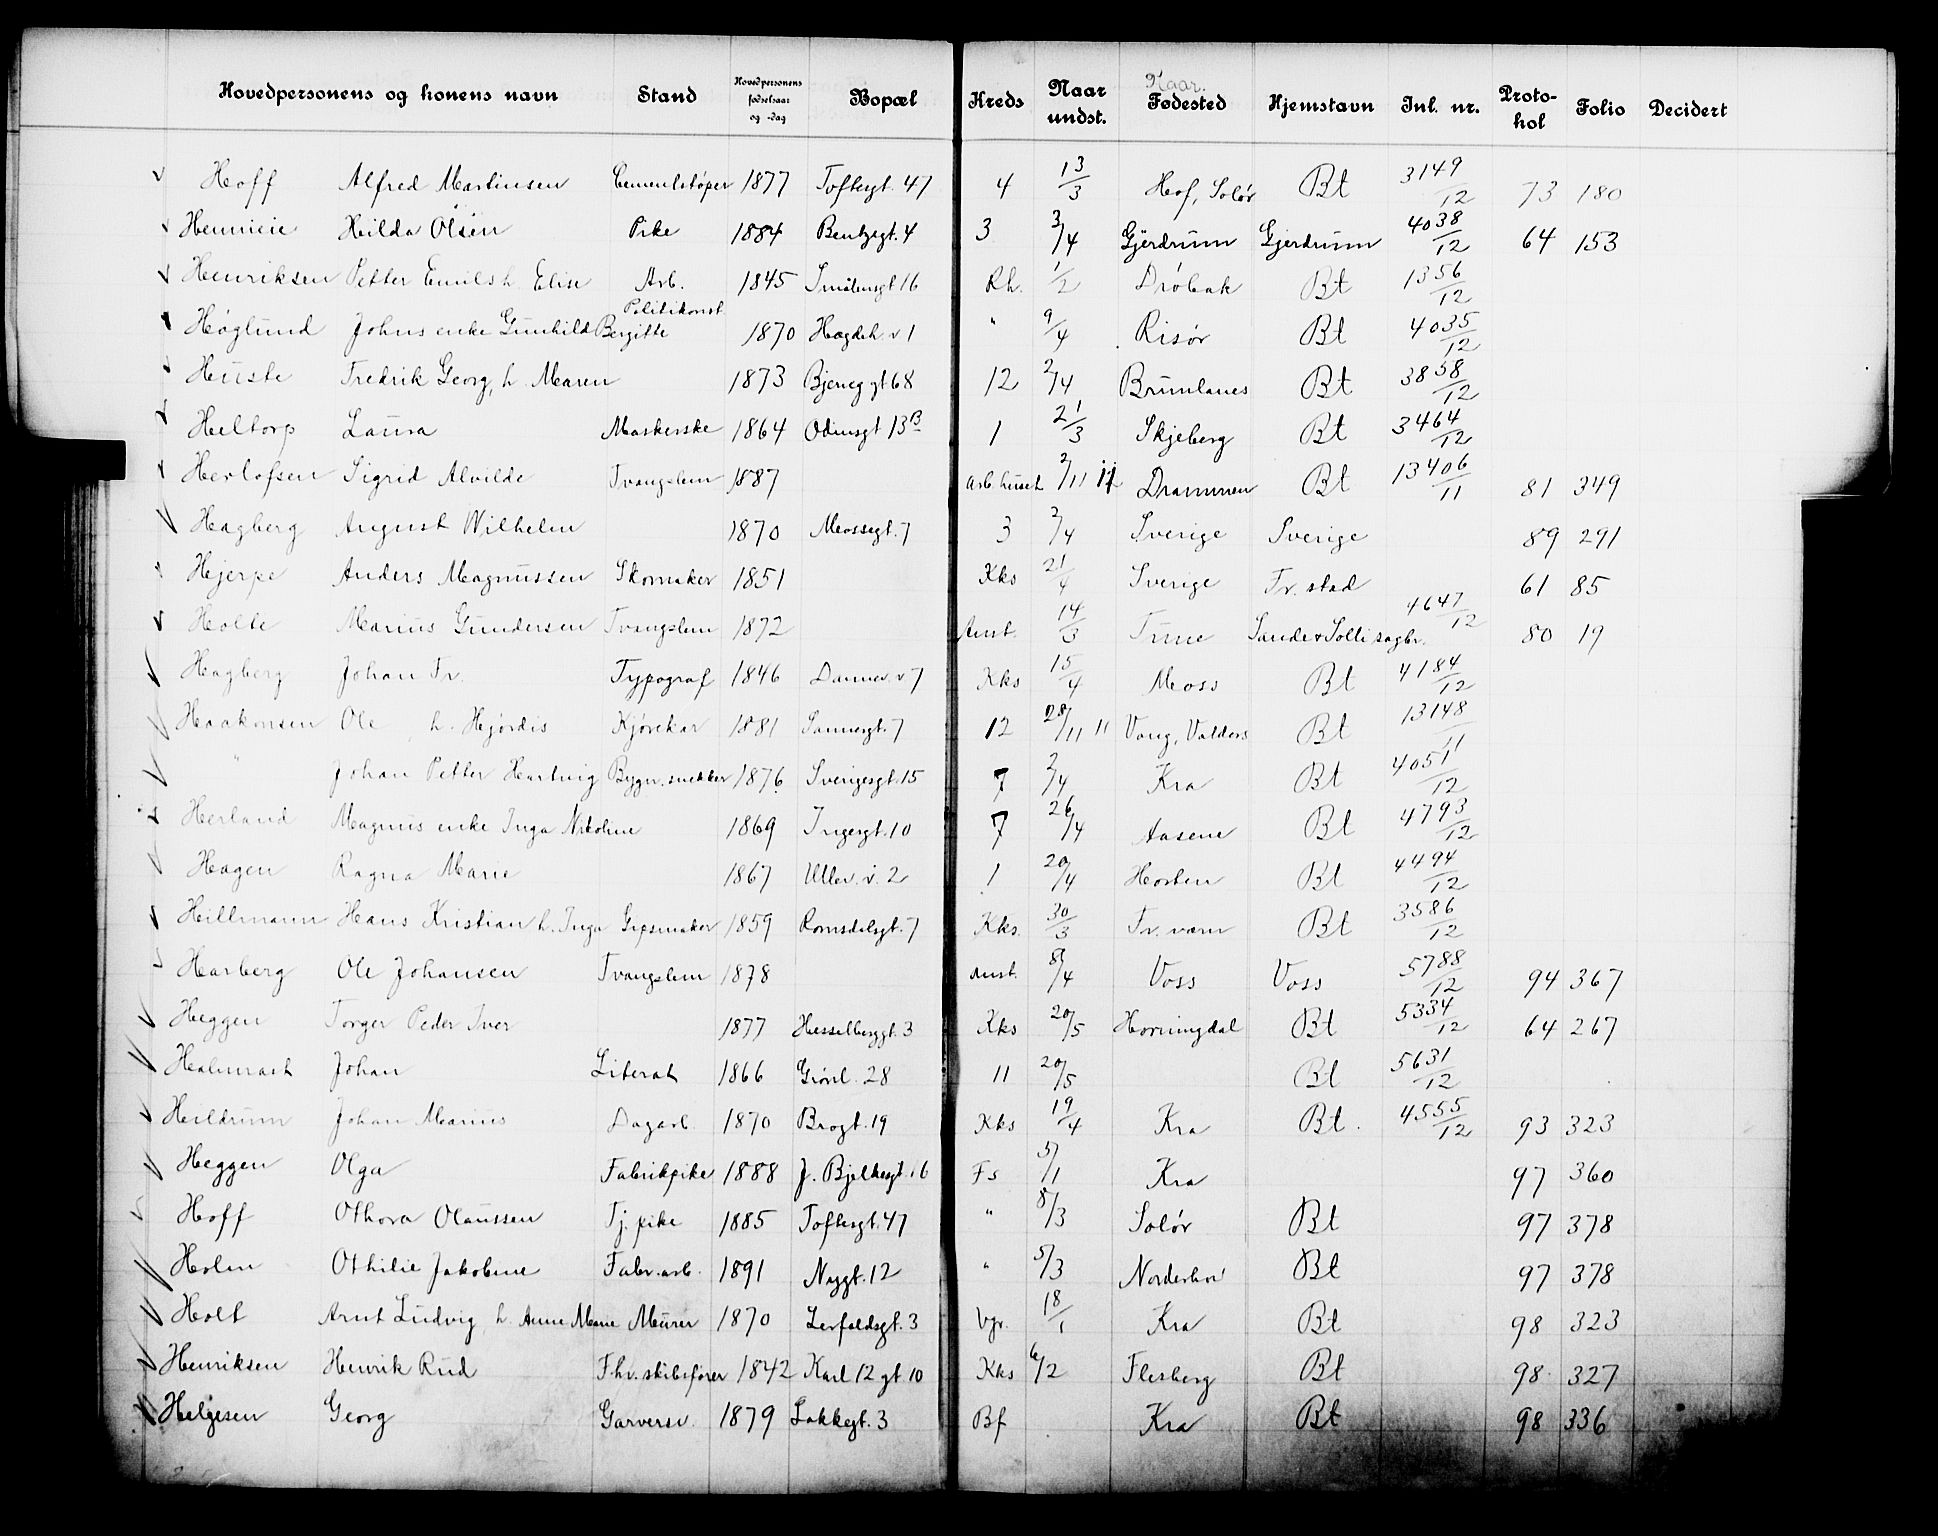 Hovedpersonens og konens navn Stand Hovedpersonens fødselsaar og -dag Bopæl Kreds Naar undst. Naar. Fødested Hjemstavn Inl. nr. Protokol Folio Decidert
Hoff Alfred Martinsen Cementstøper 1877 Toftesgt. 47 4 13/3 Hof, Solør Bt 3149/12 73 180
Hilda Olsen Pike 1884 Bentzegt. 4 3 3/4 Gjerdrum Gjerdrum 4038/12 64 153
Henriksen Petter Emils h. Elise Arb. 1845 Smålensgt 16 Rh. 1/2 Drøbak Bt 1356/12
Høglund Johns enke Gunhild Bergitte Politikonst. 1870 Hagdeh. v 1 " 9/4 Risør Bt 4035/12
Huste Fredrik Georg, h. Maren 1873 Bjereggt 68 12 2/4 Brunlanes Bt 3858/12
Heltorp Laura Maskerske 1864 Odinsgt 13 B 1 21/3 Skjeberg Bt 3464/12
Herlofsen Sigrid Alvilde Tvangslem 1887 Arb. huset 2/11 11 Drammen Bt 13406/11 81 349
Hagberg August Wilhelm 1870 Mossegt. 7 3 2/4 Sverige Sverige 89 291
Hjerpe Anders Magnussen Skomaker 1851 Kks 21/4 Sverige Fr. stad 61 85
Holte Marius Gundersen Tvangslem 1872 Anst. 14/3 Tune Sande & Solli sagbr. 4647/12 80 19
Hagberg Johan Fr. Typograf 1846 Dannev. v. 7 Kks 15/4 Moss Bt 4184/12
Haakonsen Ole, h. Hjørdis Kjørekar 1881 Sannergt. 7 12 28/11 11 Vang, Valders Bt 13148/11
" Johan Petter Hartvig Bygn. snekker 1876 Sverigesgt. 15 7 2/4 Kra Bt 4051/12
Herland Magnus enke Inga Nikoline 1869 Ingesgt. 10 7 26/4 Aasene Bt 4793/12
Hagen Ragna Marie 1867 Ullev. v. 2 1 20/4 Horten Bt 4494/12
Hillmann Hans Kristian h. Inga Gipsmaker 1859 Romsdalsgt. 7 Kks. 30/3 Fr. værn Bt 3586/12
Harberg Ole Johansen Tvangslem 1878 Anst. 8/4 Voss Voss 5788/12 94 367
Heggen Torger Peder Iver 1877 Hesselberggt. 3 Kks 20/5 Horningdal Bt 5334/12 64 267
Johan Literat 1866 Grønl. 28 11 20/5 Bt 5631/12
Heildrum Johan Marius Dagarb. 1870 Brogt. 19 Kks 19/4 Kra Bt. 4555/12 93 323
Heggen Olga Fabrikpike 1888 J. Bjelkesgt. 16 Fs 5/1 Kra 97 360
Hoff Othora Olaussen Tj. pike 1885 Toftesgt. 47 " 8/3 Solør Bt 97 378
Holm Othilie Jakobine Fabr. arb. 1891 Nygt. 12 " 5/3 Norderhov Bt 97 378
Holt Arnt Ludvig, h. Anne Marie Murer 1870 Lerfaldsgt. 3 Vgr. 18/1 Kra Bt 98 323
Henriksen Henrik Rud F.hv. skibsfører 1842 Karl 12 gt. 10 Kks 6/2 Flesberg Bt 98 327
Helgesen Georg Garversv. 1879 Lakkegt. 3 Bf Kra Bt 98 336